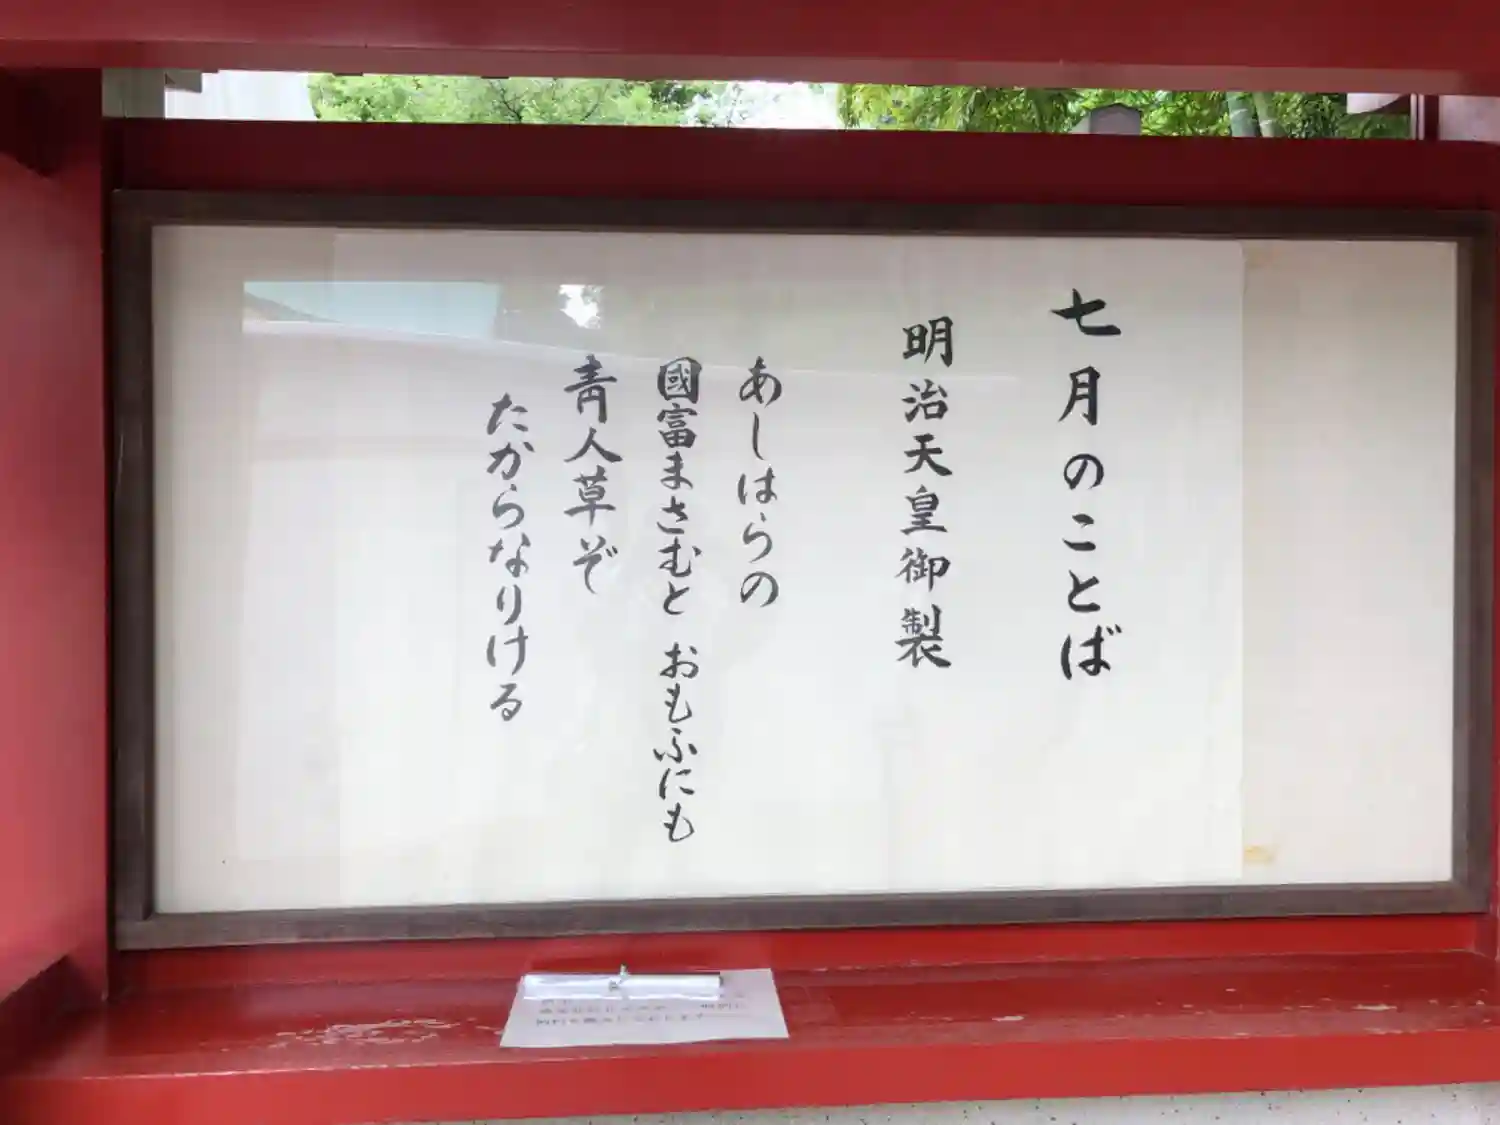 七月のことば
明治天皇御製
あしはらの
國富まさむと おもふにも
靑人草ぞ
たからなりける